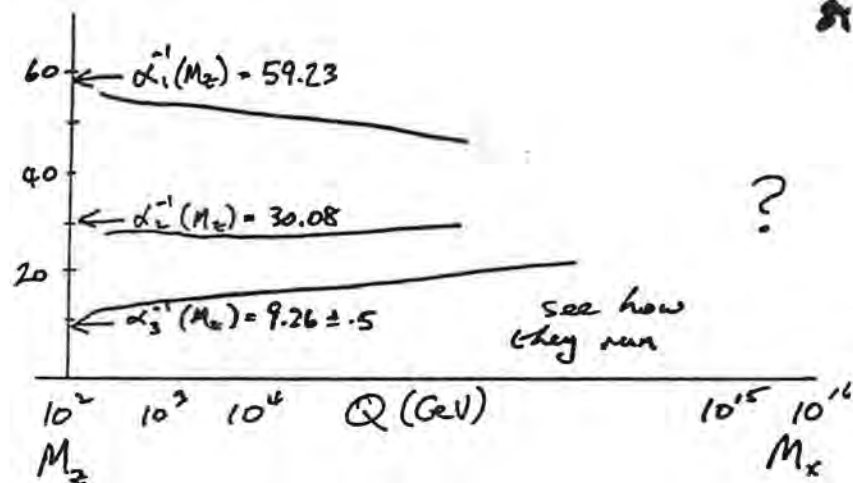 60
α₁⁻¹(M_z) = 59.23
40
α₂⁻¹(M_z) = 30.08
?
20
α₃⁻¹(M_z) = 9.26 ± .5
see how
they run
10² 10³ 10⁴ Q (GeV) 10¹⁵ 10¹⁶
M_z M_x